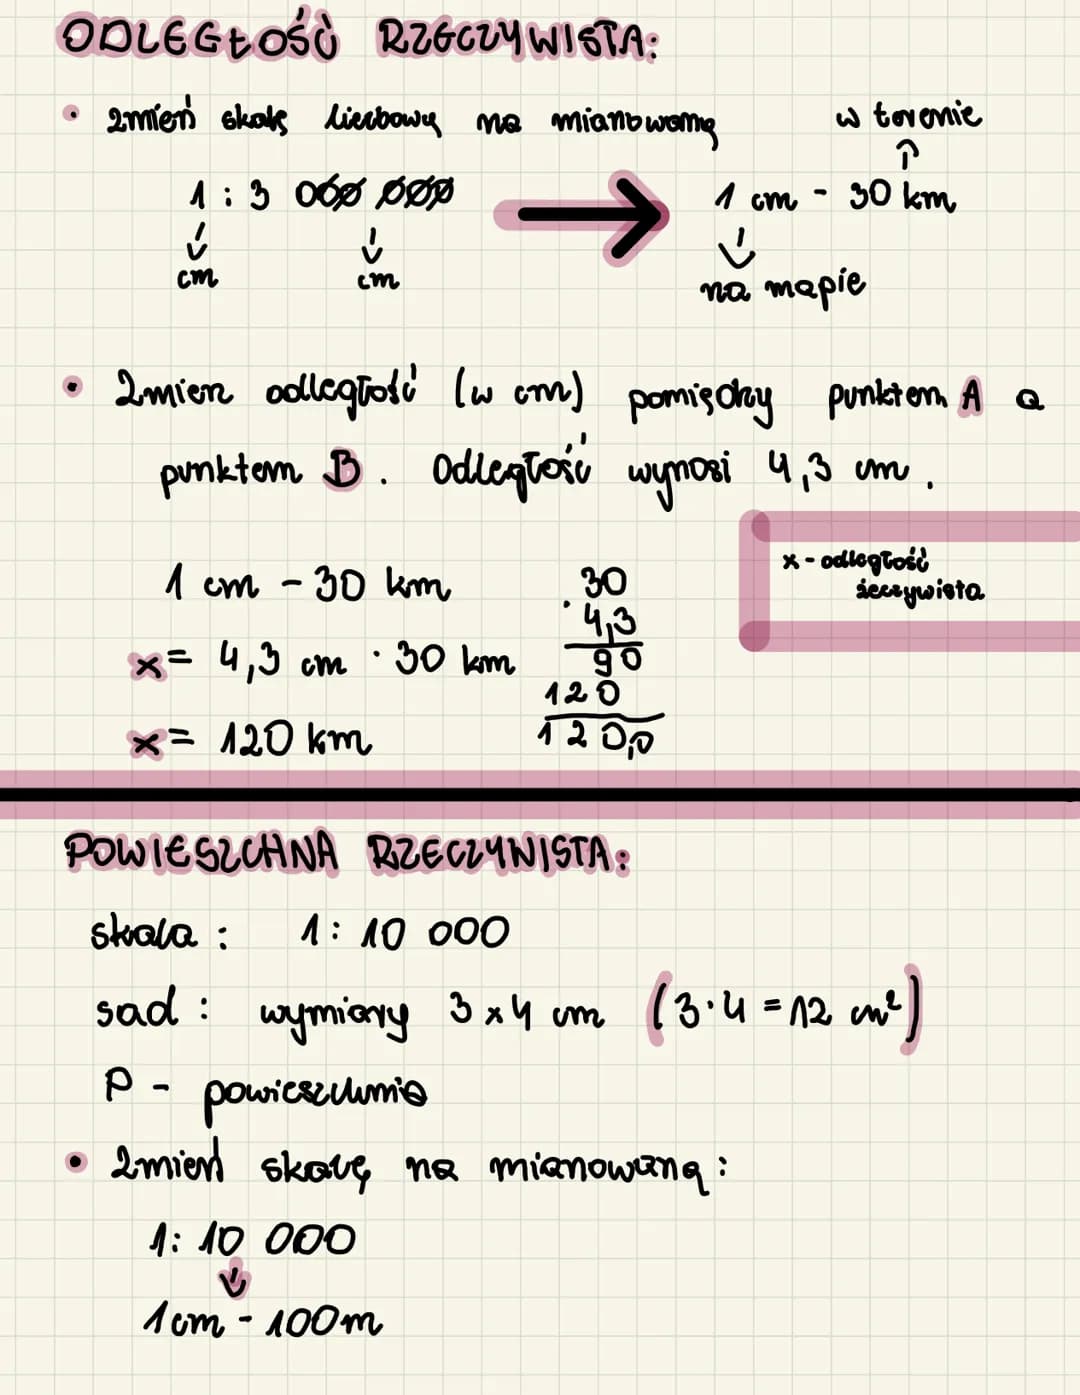 ODLEGŁOŚĆ RZECZYWISTA:
• zmień skalę liczbową na mianowaną
w terenie
1 : 3 000 000 → 1 cm - 30 km
cm cm na mapie
• Zmierz odległość (w cm) pomiędzy punktem A a
punktem B. Odległość wynosi 4,3 cm.
x - odległość
rzeczywista
1 cm - 30 km
x = 4,3 cm · 30 km
x = 120 km
30
· 4,3
90
120
120,0
POWIESZCHNA RZECZYWISTA:
skala : 1 : 10 000
sad : wymiary 3 x 4 cm (3·4 = 12 cm²)
P - powieszchnia
• Zmień skalę na mianowaną :
1 : 10 000
1 cm - 100 m